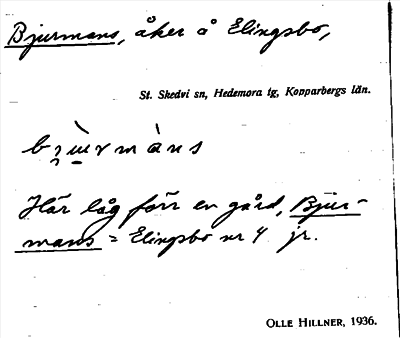 Bjurmans, åker å Elingsbo,
St. Skedvi sn, Hedemora tg, Kopparbergs län.
Här låg förr en gård, Bjur-
mans = Elingsbo nr 4 jr.
OLLE HILLNER, 1936.